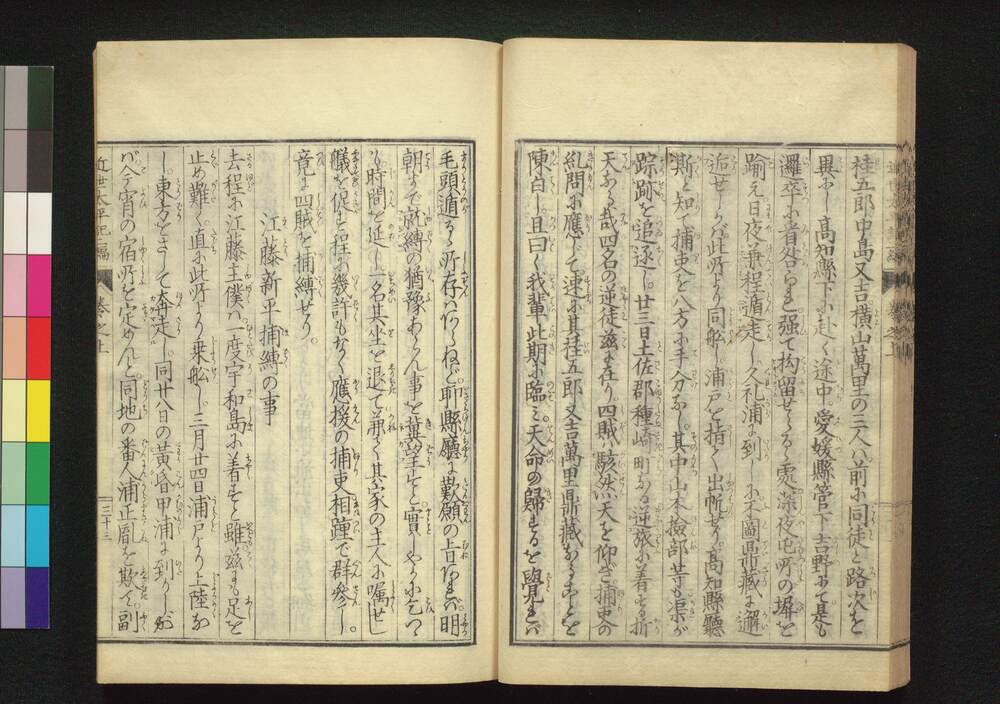 桂五郎中島又吉横山萬里の三人ハ前に同徒と路次を
異にし高知縣下に赴く途中愛媛縣管下吉野にて是も
邏卒に咎られ强て拘留せらるゝ處深夜屯所の塀を
踰え日夜兼程遁走し久礼浦に到し に不圖鼎藏に邂
逅せしかバ此所より同舩し浦戸を指て出帆せり高知縣聽
斯と知て捕吏を八方に手分なし其中山本撿部等も渠が
踪跡を追逐し廿三日土佐郡種崎町なる逆旅に着する折
天なる哉四名の逆徒玆に在り四賊ハ駭然天を仰ぎ捕吏の
糺問に應して速に其桂五郎又吉萬里鼎藏なることを
陳白し且曰く我輩此期に臨ミ天命の歸するを覺れバ
毛頭遁るゝ所存ハあらねど聊縣廳に歎願の旨あれバ明
朝まで漸縛の猶豫あらん事を冀望すと實しやかに乞つ
も時間を延し一名其坐を退て諭く其家の主人に嘱せし
艤を促す程に幾許もなく應援の捕吏相踵で群參し
竟に四賊を捕縛せり。
江藤新平捕縛の事
去程に江藤主僕ハ一度宇和島に着すと雖玆にも足を
止め難く直に此所より乗舩し三月廿四日浦戸より上陸な
し東方をさして奔走し同廿八日の黄昏甲浦に到りしが
バ今宵の宿所を定めんと同地の番人浦正胤を欺て副
近世太平記二編 卷之上 三十三